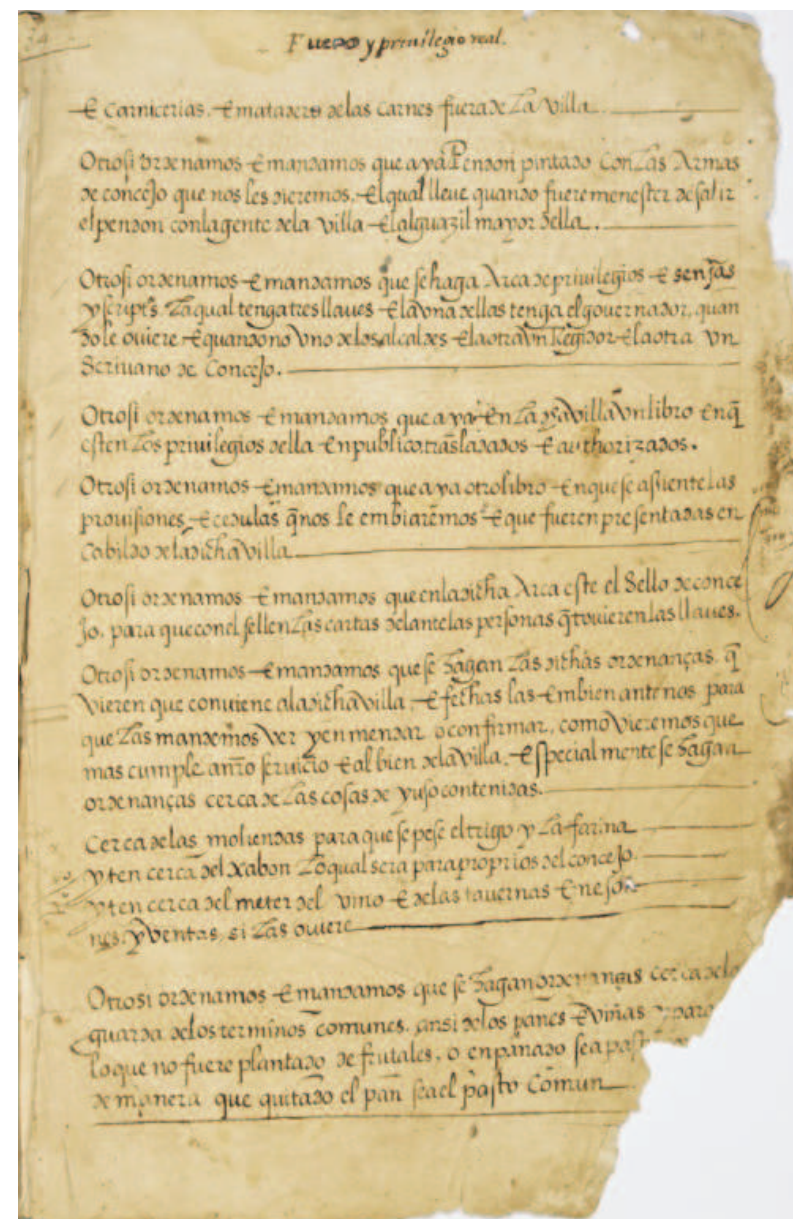 Fuero y preuilegio real.
E carnicerias. E mataderos de las carnes fuera de La villa
Otrosi ordenamos E mandamos que aya Pendon pintado con Las Armas
de concejo que nos les dieremos. El qual lleue quando fuere menester de salir
el pendon con la gente de la villa El alguazil mayor della.
Otrosi ordenamos E mandamos que se haga Arca de priuilegios E senjas
y scripts. La qual tenga tres llaues E la vna dellas tenga el gouernador, quan
do le ouiere E quando no Vno de los alcaldes E la otra Vn Regidor E la otra Vn
Scriuano de Concejo.
Otrosi ordenamos E mandamos que aya En La dha Villa Vn libro En q̃
esten Los priuilegios della En publico trasladados E authorizados.
Otrosi ordenamos E mandamos que aya otro libro En que se assiente las
prouisiones E cedulas q̃ nos le embiaremos E que fueren presentadas en
Cabildo de la dicha villa
Otrosi ordenamos E mandamos que en la dicha Arca este el Sello de conce
jo. para que con el sellen Las cartas delante las personas q̃ touieren las llaues.
Otrosi ordenamos E mandamos que se hagan Las dichas ordenanças q̃
Vieren que conuiene a la dicha villa E fechas las Embien ante nos para
que Las mandemos Ver y enmendar o confirmar, como Vieremos que
mas cumple a nr̃o seruicio E al bien de la villa. Especialmente se hagan
ordenanças cerca de Las cosas de yuso contenidas.
Cerca de las moliendas para que se pese el trigo y La farina
yten cerca del xabon Lo qual sera para proprios del concejo
yten cerca del meter del vino E de las tauernas E
nes y Ventas si Las ouiere
Otrosi ordenamos E mandamos que se hagan cerca de
guarda de los terminos comunes. ansi de los panes E viñas
lo que no fuere plantado de frutales, o enpanado sea
de manera que quitado el pan sea el pasto Comun